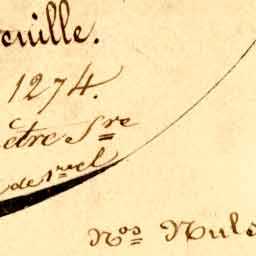 euille.
1274.
être Sre
de 1re cl
Nos Nulé